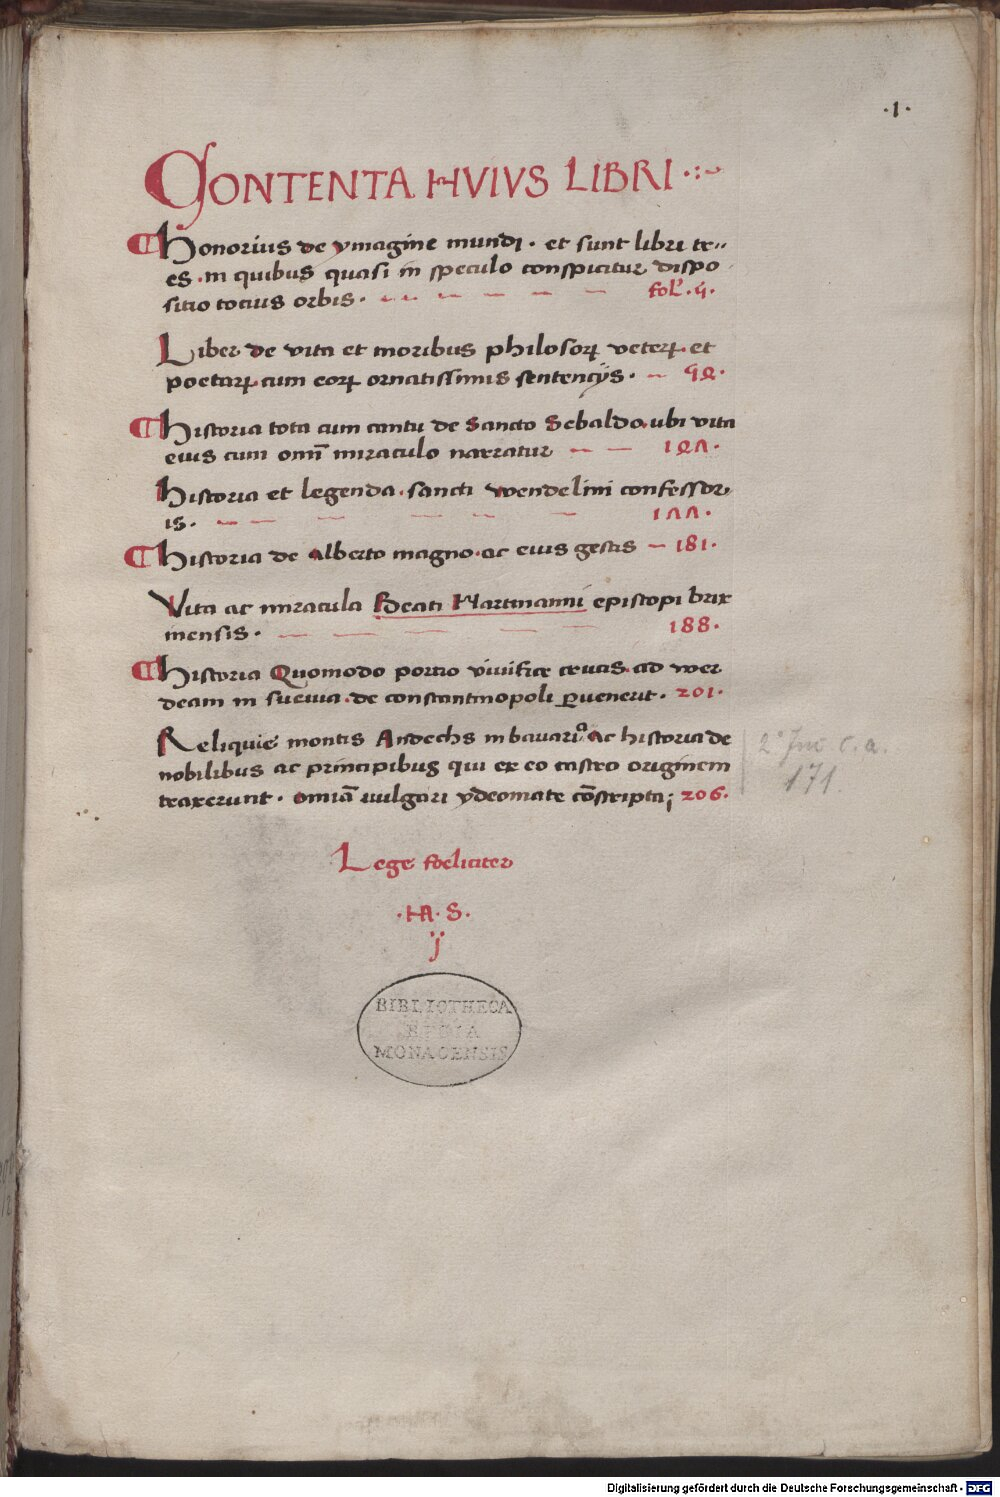 ·1·
CONTENTA HVIVS LIBRI
Honorius de ymagine mundi · et sunt libri tr
es · in quibus quasi in speculo conspicitur dispo
sitio totius orbis · fol. ij.
Liber de vita et moribus philosoꝝ veteꝝ et
poetaꝝ cum eoꝝ ornatissimis sentencijs ·
Historia tota cum cantu de Sancto Sebaldo ubi vita
eius cum omī miraculo narratur 1ꝿΛ·
Historia et legenda · sancti Wendelini confessor
is · 1ΛΛ·
Historia de Alberto magno · ac eius gestis 181·
Vita ac miracula Beati Hartmanni episcopi brix
inensis · 188·
Historia Quomodo portio vivifice crucis ad wer
deam in suevia · de constantinopoli ꝑvenerit · 201·
Reliquie montis Andechs in bavariꝰ Ac historia de
nobilibus ac principibus qui ex eo castro originem
traxerunt · omīa vulgari ydeomate cōscripta; 206·
2° Inc. c. a.
171.
Lege foeliciter
·HA·S·
ij
BIBLIOTHECA
REGIA
MONACENSIS
Digitalisierung gefördert durch die Deutsche Forschungsgemeinschaft - DFG